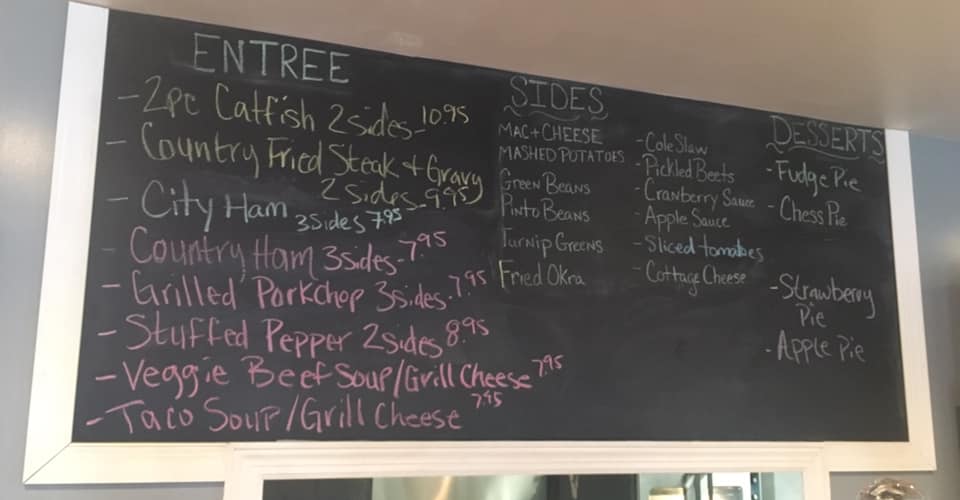 ENTREE
- 2pc Catfish 2 sides - 10.95
- Country Fried Steak + Gravy
2 Sides - 9.95
- City Ham 3 Sides 7.95
- Country Ham 3 sides - 7.95
- Grilled Porkchop 3 sides - 7.95
- Stuffed Pepper 2 sides 8.95
- Veggie Beef Soup/Grill Cheese 7.95
- Taco Soup/Grill Cheese 7.95
SIDES
MAC + CHEESE
MASHED POTATOES
Green Beans
Pinto Beans
Turnip Greens
Fried Okra
- Cole Slaw
- Pickled Beets
- Cranberry Sauce
- Apple Sauce
- Sliced tomatoes
- Cottage Cheese
DESSERTS
- Fudge Pie
- Chess Pie
- Strawberry
Pie
- Apple Pie